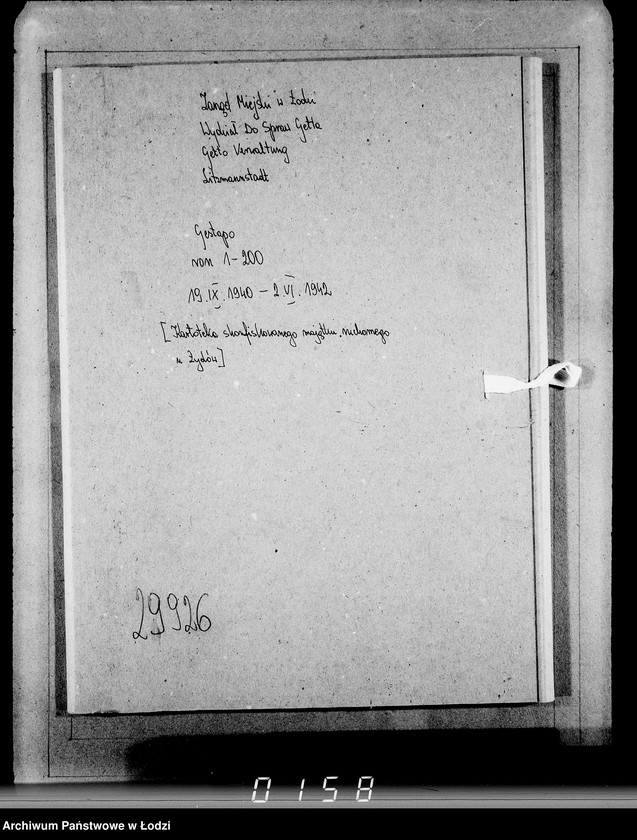 Zarząd Miejski w Łodzi
Wydział Do Spraw Getta
Getto Verwaltung
Litzmannstadt
Gestapo
von 1-200
19.IX.1940 - 2.VI.1942
[Kartoteka skonfiskowanego majątku ruchomego
u Żydów]
29926
0158
Archiwum Państwowe w Łodzi